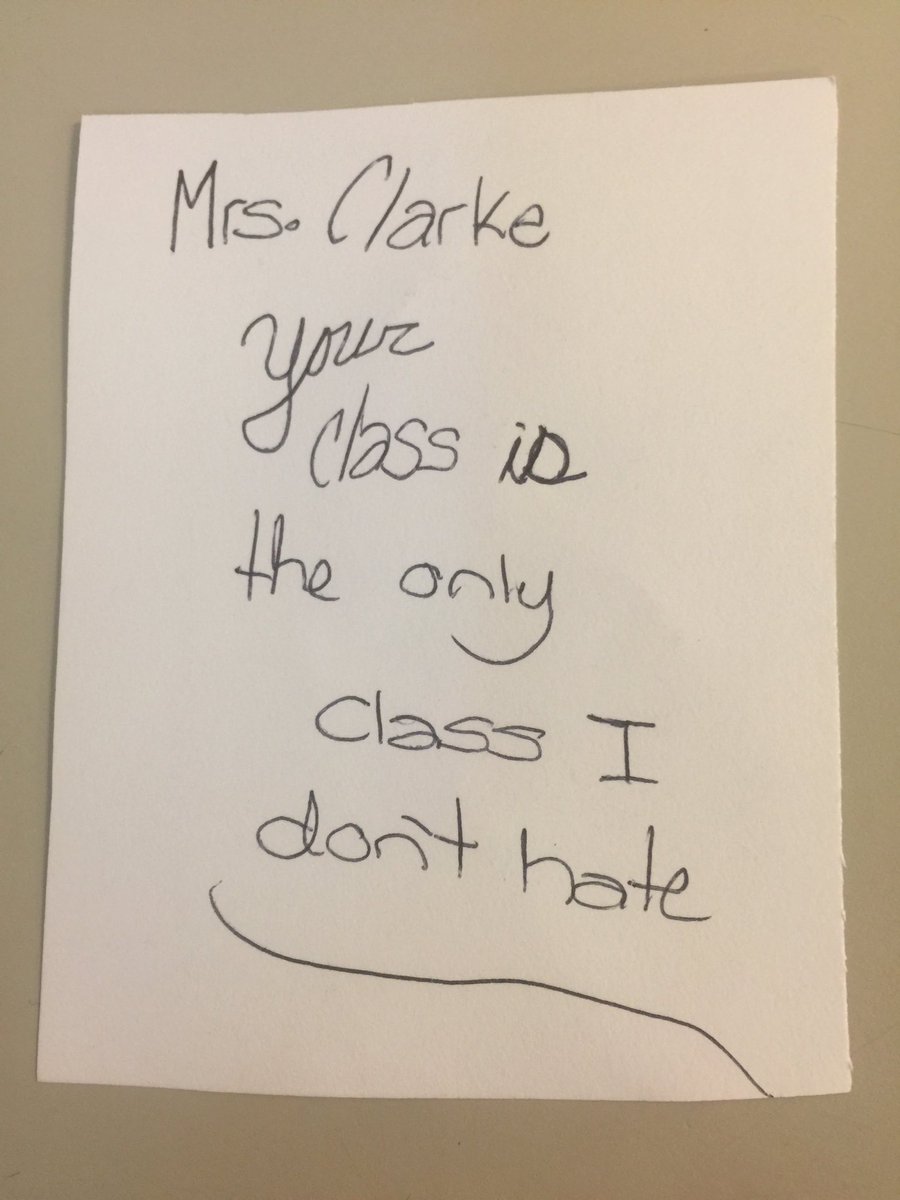 Mrs. Clarke
your
class is
the only
class I
don't hate